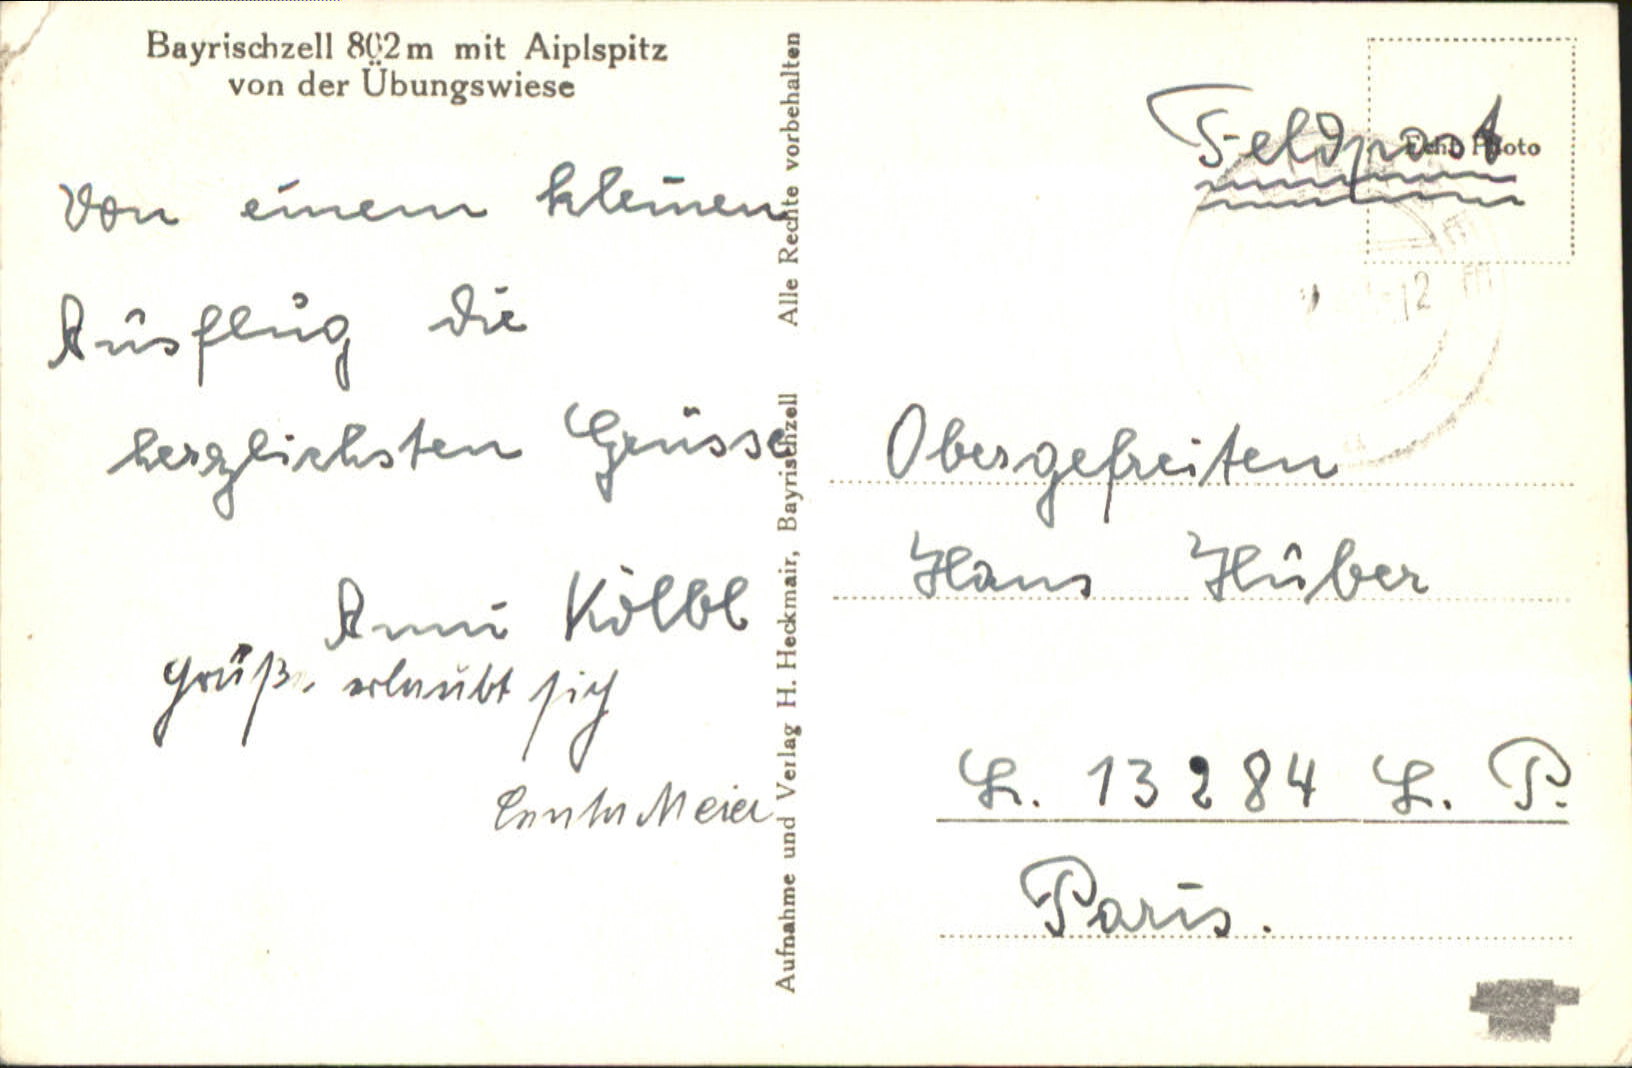 Bayrischzell 802 m mit Aiplspitz
von der Übungswiese
Von einem kleinen
Ausflug die
herzlichsten Grüsse
Anni Kölbl
Grüße erlaubt sich
Meier
Aufnahme und Verlag H. Heckmair, Bayrischzell Alle Rechte vorbehalten
Feldpost
Echt Photo
12
Obergefreiten
Hans Huber
L. 13284 L. P.
Paris.